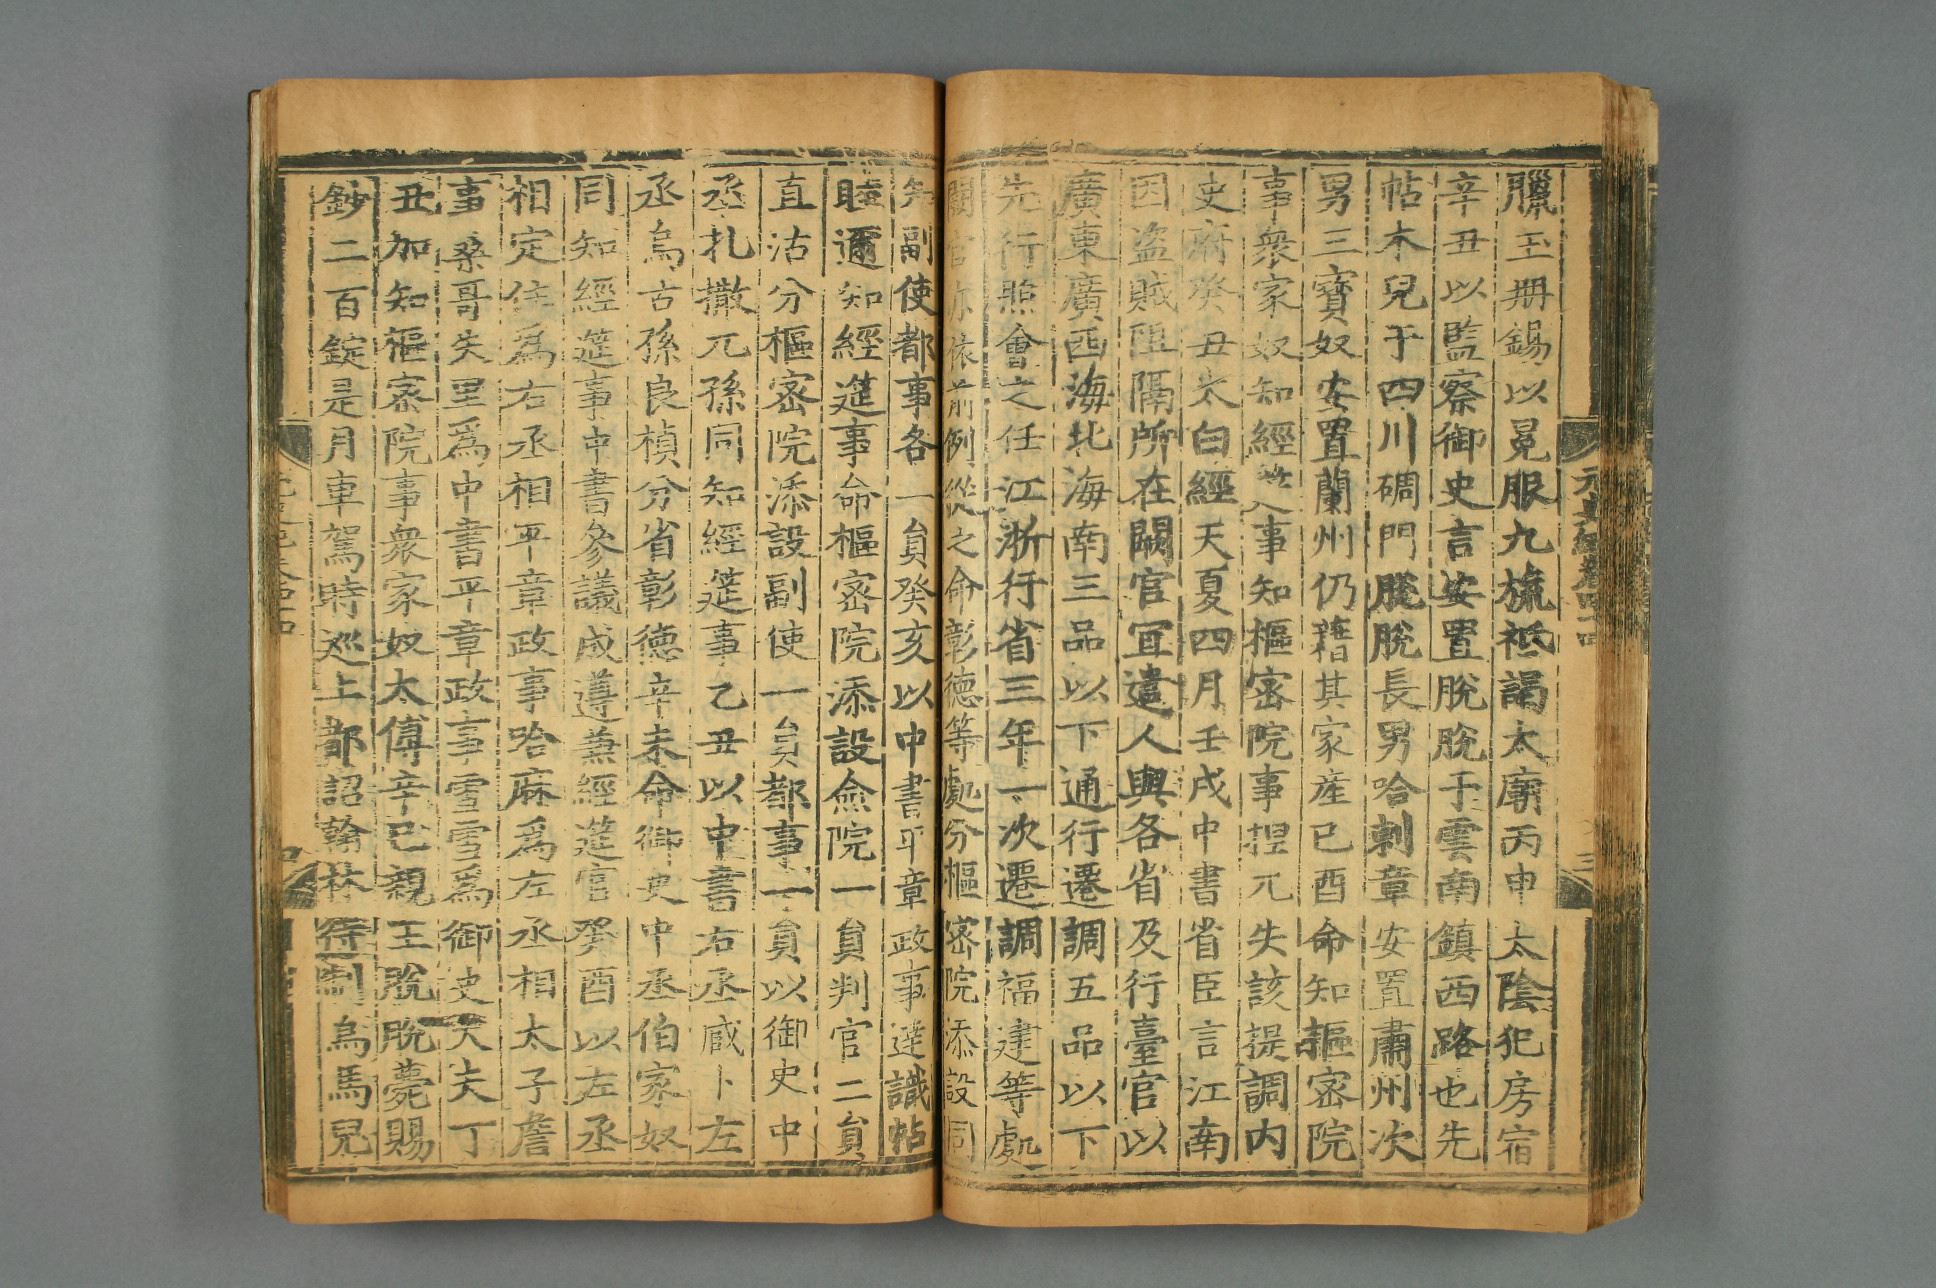 臘玉冊錫以冕服九旒祗謁太廟丙申太陰犯房宿
辛丑以監察御史言安置脫脫于雲南鎮西路也先
帖木兒于四川碉門脫脫長男哈剌章安置肅州次
男三寶奴安置蘭州仍籍其家產己酉命知樞密院
事衆家奴知經筵事知樞密院事捏兀失該提調內
史府癸丑太白經天夏四月壬戌中書省臣言江南
因盜賊阻隔所在闕官宜遣人與各省及行臺官以
廣東廣西海北海南三品以下通行遷調五品以下
先行照會之任江浙行省三年一次遷調福建等處
闕官亦依前例從之命彰德等處分樞密院添設同
知副使都事各一員癸亥以中書平章政事達識帖
睦邇知經筵事命樞密院添設僉院一員判官二員
直沽分樞密院添設副使一員都事一員以御史中
丞扎撒兀孫同知經筵事乙丑以中書右丞臧卜左
丞烏古孫良楨分省彰德辛未命御史中丞伯家奴
同知經筵事中書參議成遵兼經筵官癸酉以左丞
相定住爲右丞相平章政事哈麻爲左丞相太子詹
事桑哥失里爲中書平章政事雪雪爲御史大夫丁
丑加知樞密院事衆家奴太傅辛巳親王脫脫薨賜
鈔二百錠是月車駕時巡上都詔翰林待制烏馬兒
元史紀卷四十四
三